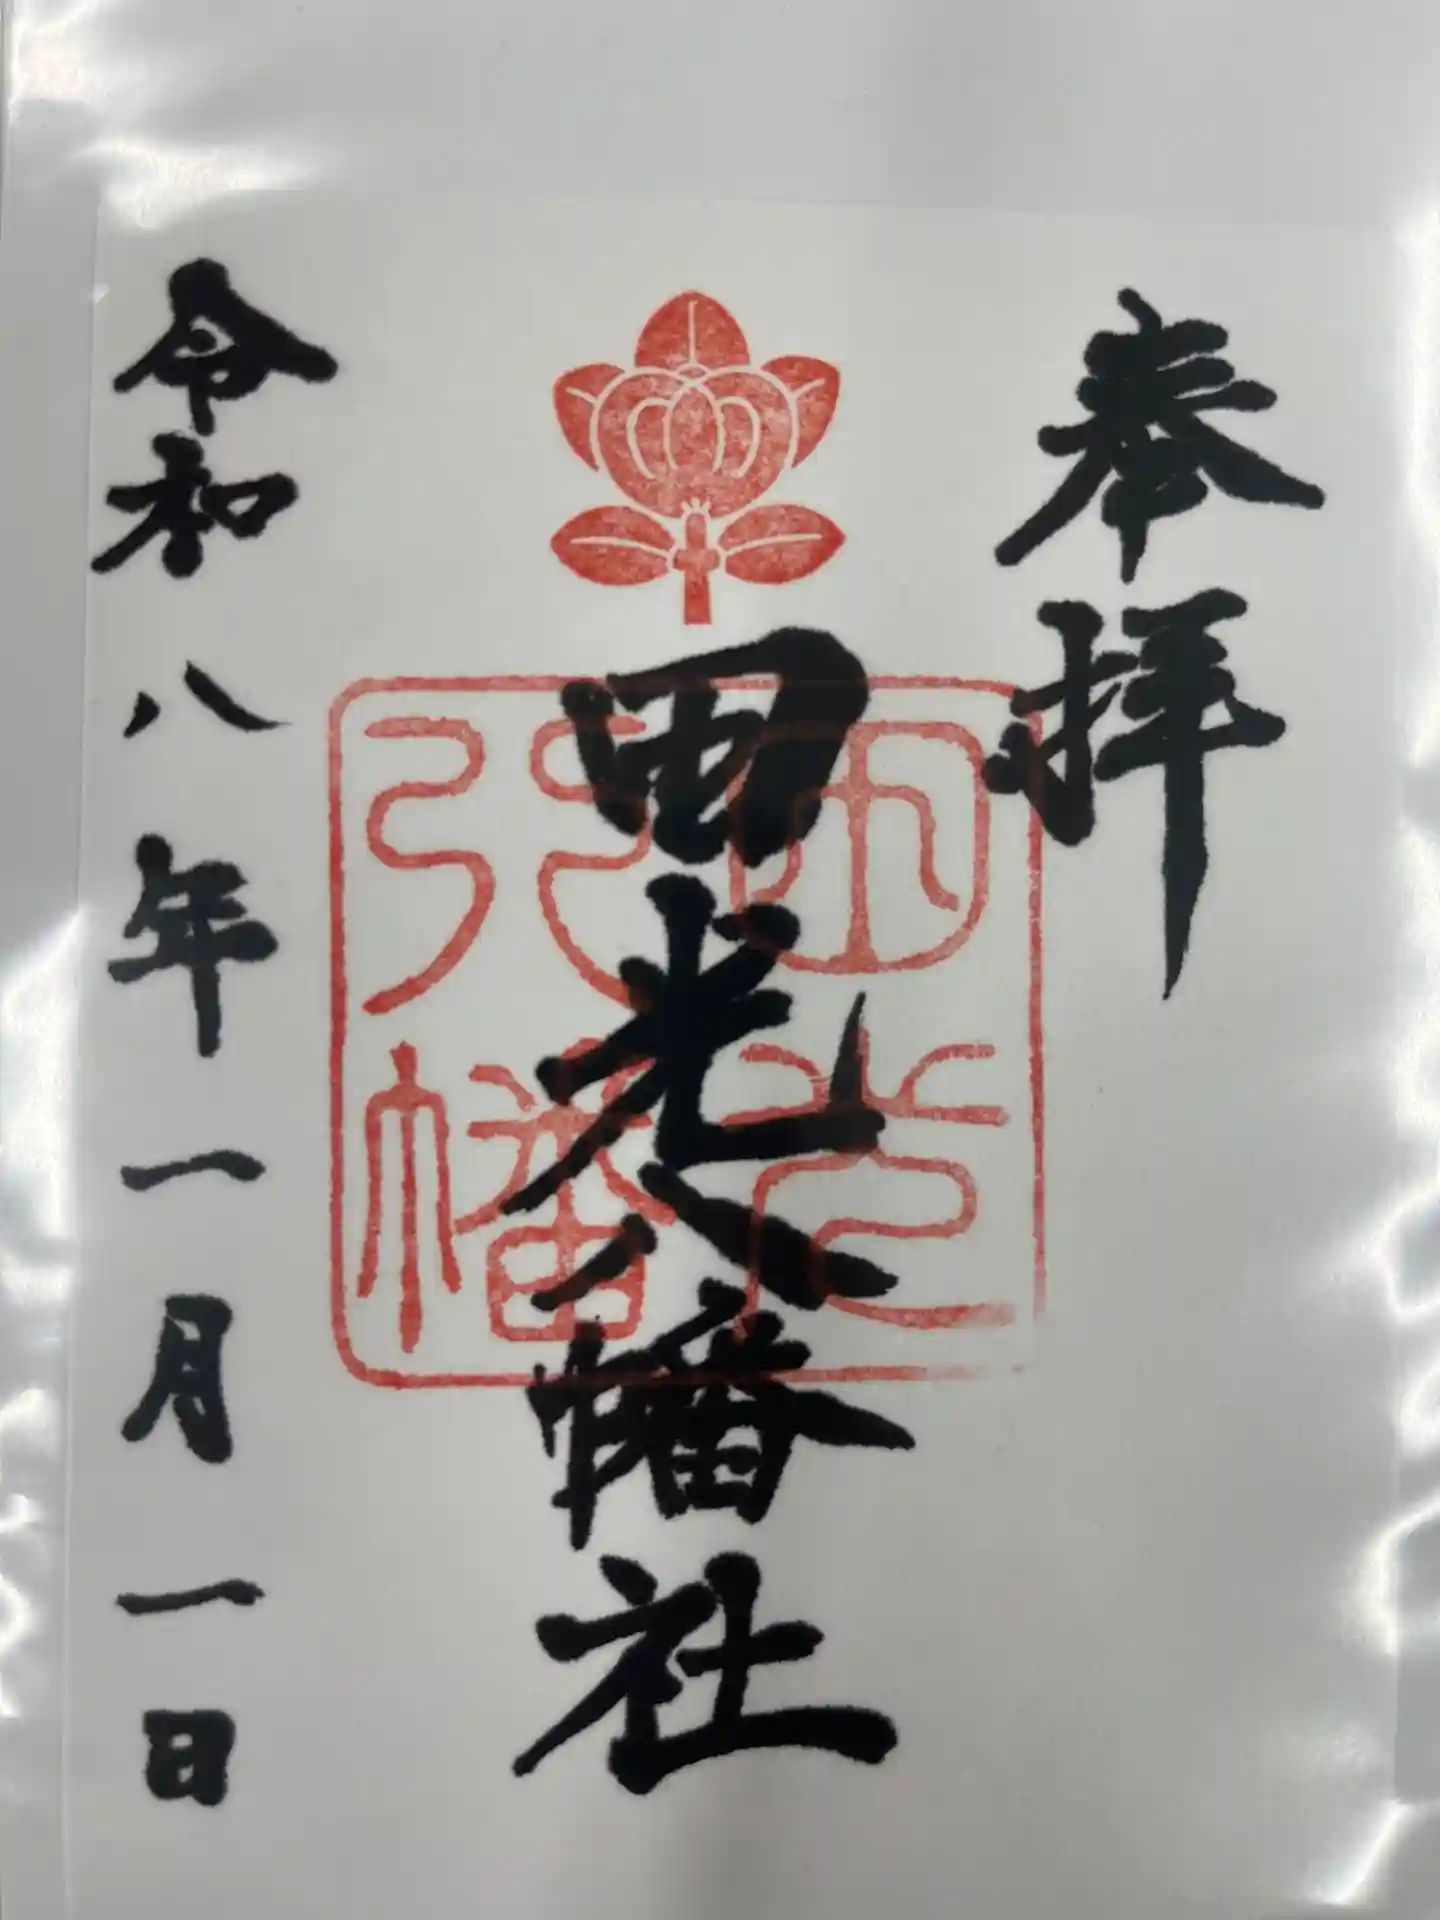 奉拝
田光八幡社
田光八幡
令和八年一月一日